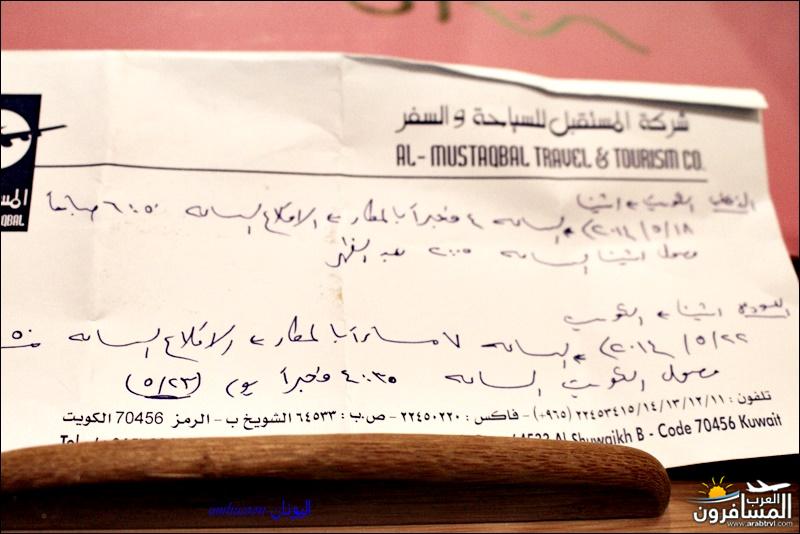 شركة المستقبل للسياحة والسفر
AL- MUSTAQBAL TRAVEL & TOURISM CO.
QBAL
الذهاب الكويت ← اثينا
٢٠١٤/٥/١٨ الساعه ٤ فجراً بالمطار ← الاقلاع الساعه ٦:٥٠ صباحاً
وصول اثينا الساعه ٢:٠٥ بعد الظهر
العوده اثينا ← الكويت
٢٠١٤/٥/٢٢ الساعه ٧ مساءً بالمطار ← الاقلاع الساعه
وصول الكويت الساعه ٤:٣٥ فجراً يوم (٥/٢٣)
تلفون : ٢٢٤٥٣٤١٥/١٤/١٣/١٢/١١ (٩٦٥+) – فاكس : ٢٢٤٥٠٢٢٠ – ص.ب : ٦٤٥٣٣ الشويخ ب – الرمز 70456 الكويت
Al Shuwaikh B - Code 70456 Kuwait
اليونان
العرب المسافرون
www.arabtrvl.com